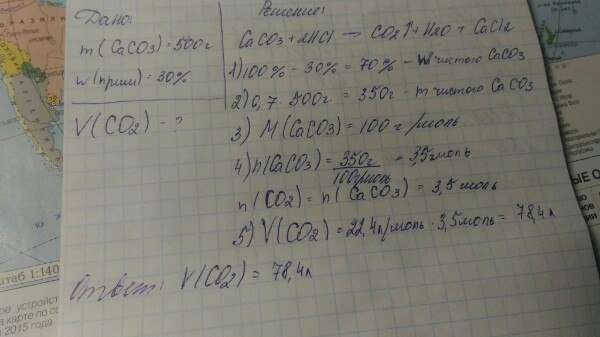 Дано:
m(CaCO3) = 500г
w(прим) = 30%
V(CO2) - ?
Решение:
CaCO3 + 2HCl → CO2↑ + H2O + CaCl2
1) 100% - 30% = 70% - w чистого CaCO3
2) 0,7 · 500г = 350г - m чистого CaCO3
3) M(CaCO3) = 100 г/моль
4) n(CaCO3) = 350г / 100г/моль = 3,5 моль
n(CO2) = n(CaCO3) = 3,5 моль
5) V(CO2) = 22,4л/моль · 3,5моль = 78,4л
Ответ: V(CO2) = 78,4л
штаб 1:140
2015 года
ЫЕ О